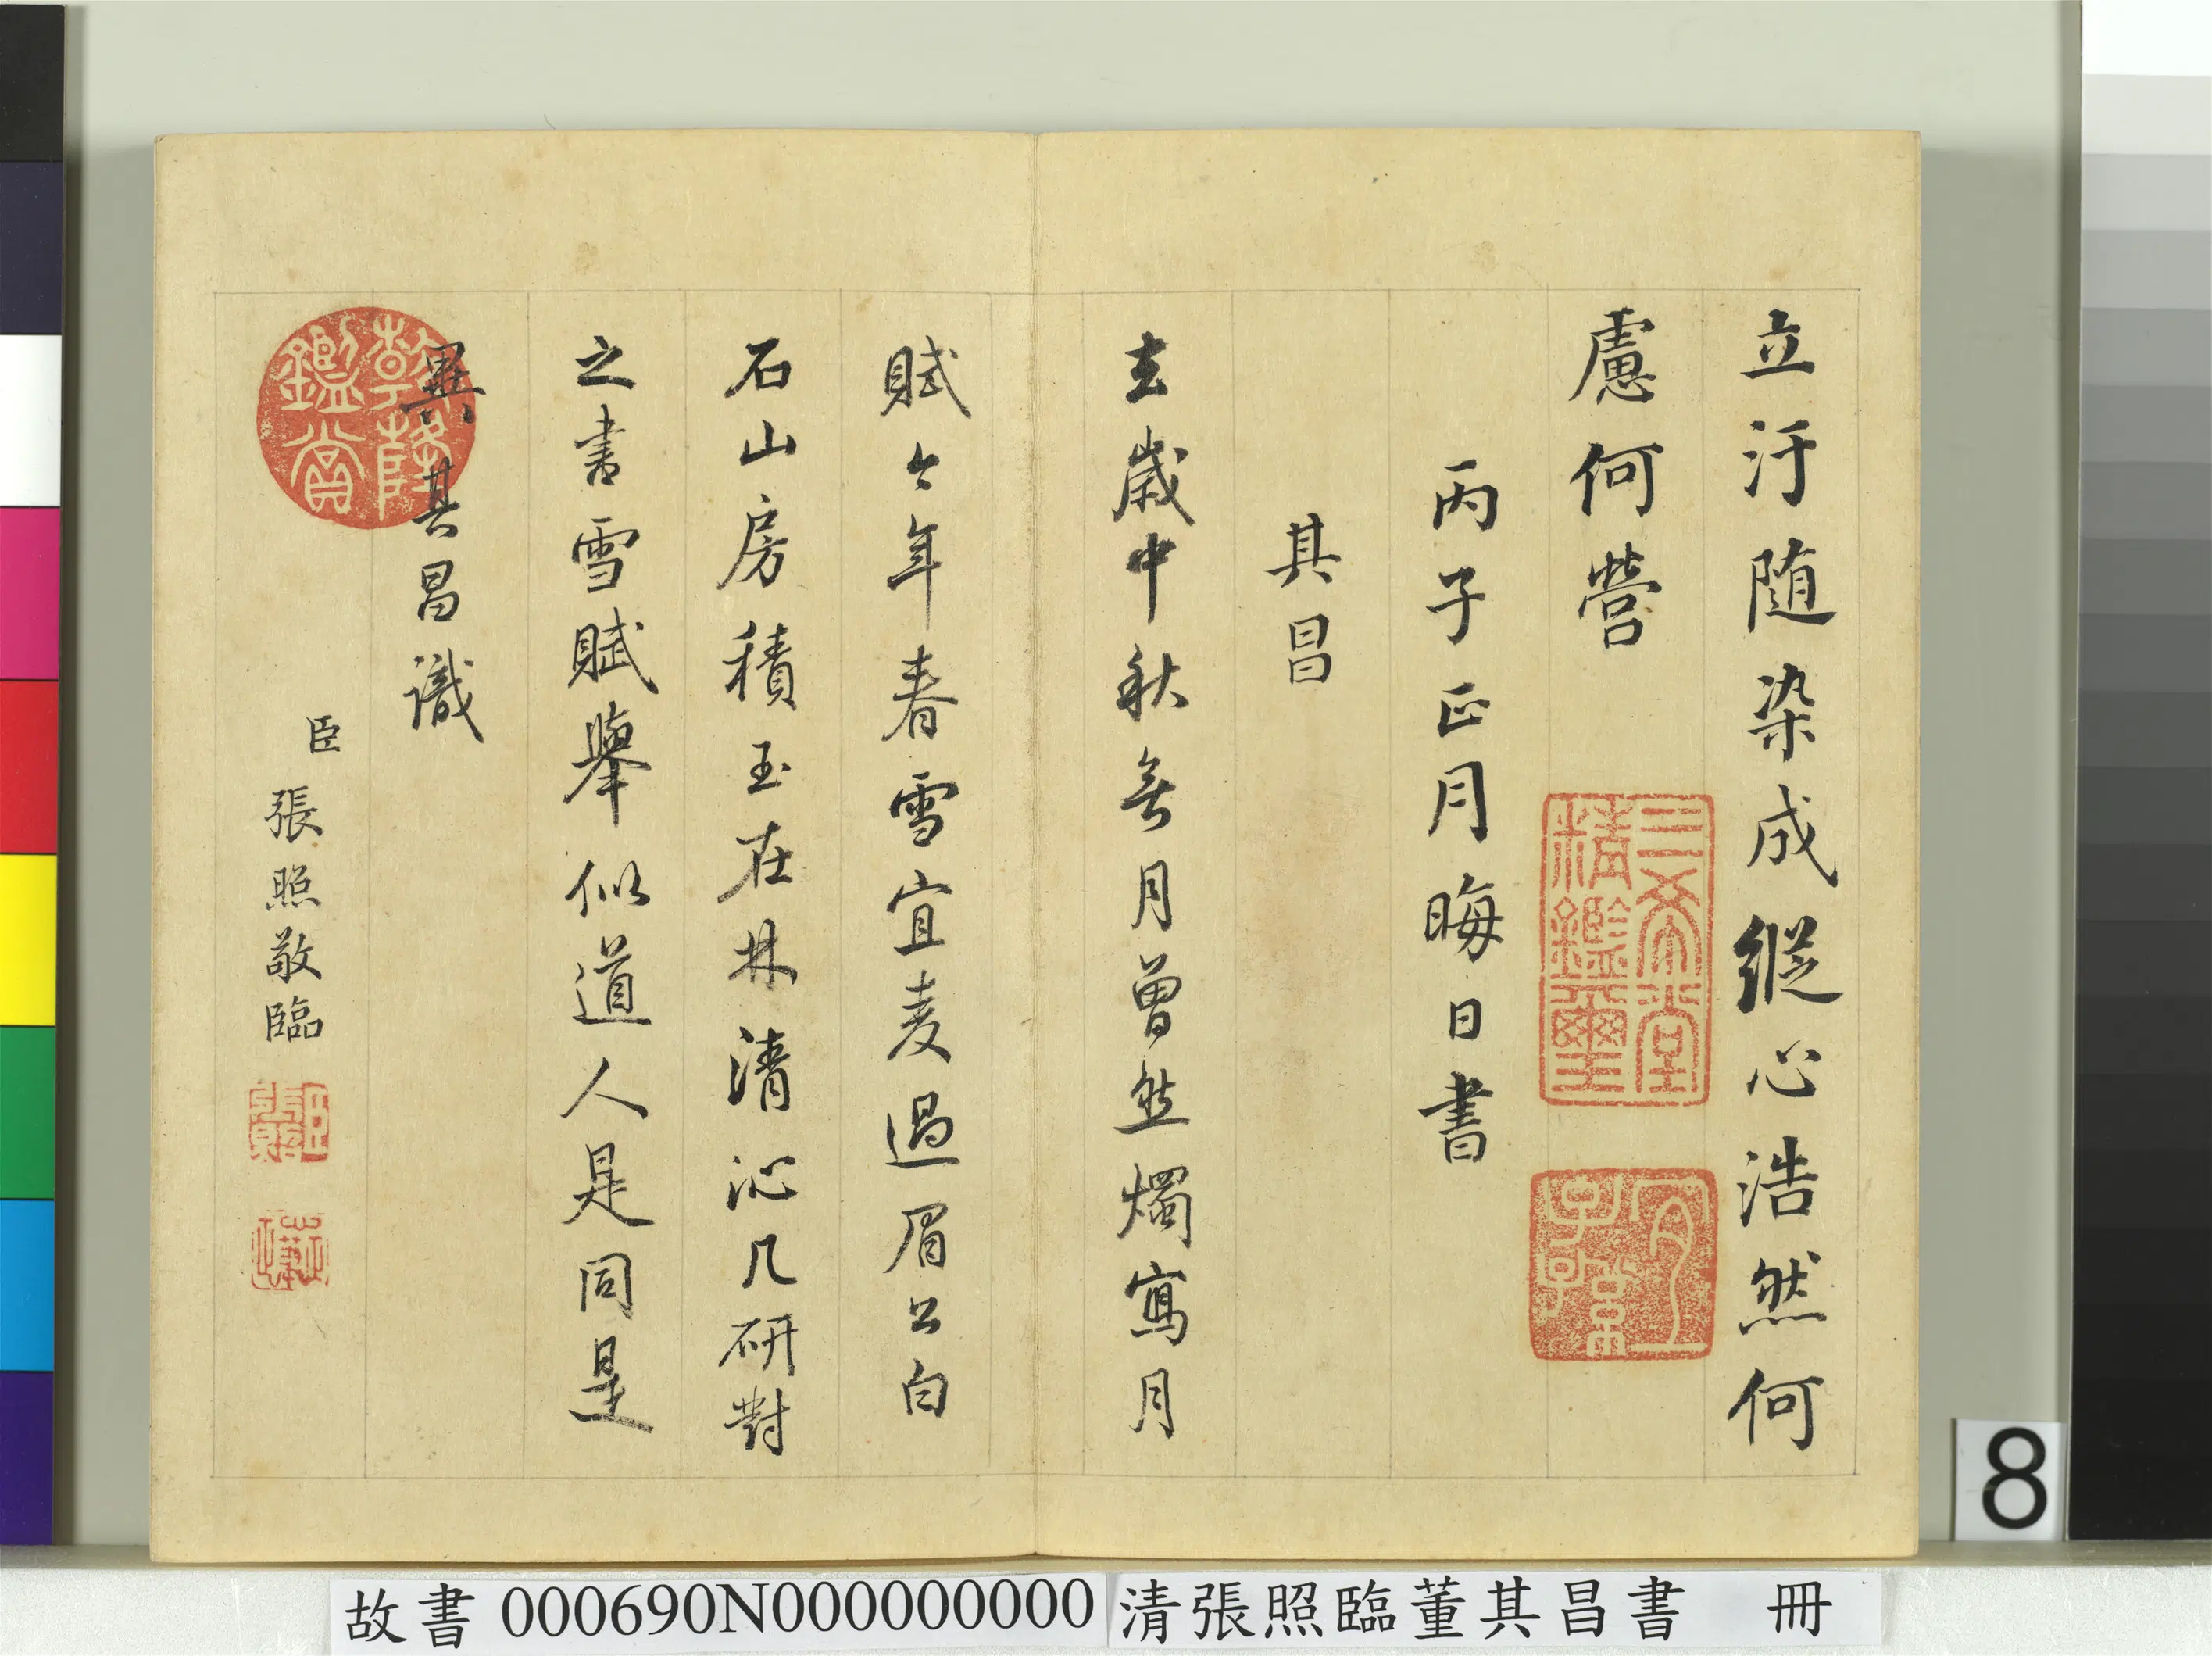 立汙随染成縱心浩然何
慮何營
丙子正月晦日書
其昌
去歲中秋無月曾然燭寫月
賦今年春雪宜麦過眉公白
石山房積玉在林清沁几研對
之書雪賦舉似道人是同是
異其昌識
臣張照敬臨
三希堂精鑑璽
宜子孫
乾隆鑑賞
臣張照
8
故書 000690N000000000 清張照臨董其昌書 冊